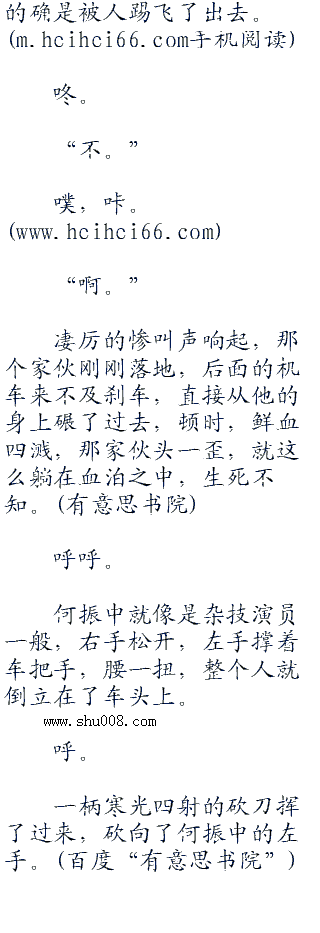 的确是被人踢飞了出去。
(m.hcihci66.com手机阅读)
咚。
“不。”
噗，咔。
(www.hcihci66.com)
“啊。”
凄厉的惨叫声响起，那
个家伙刚刚落地，后面的机
车来不及刹车，直接从他的
身上碾了过去，顿时，鲜血
四溅，那家伙头一歪，就这
么躺在血泊之中，生死不
知。(有意思书院)
呼呼。
何振中就像是杂技演员
一般，右手松开，左手撑着
车把手，腰一扭，整个人就
倒立在了车头上。
www.shu008.com
呼。
一柄寒光四射的砍刀挥
了过来，砍向了何振中的左
手。(百度“有意思书院”)